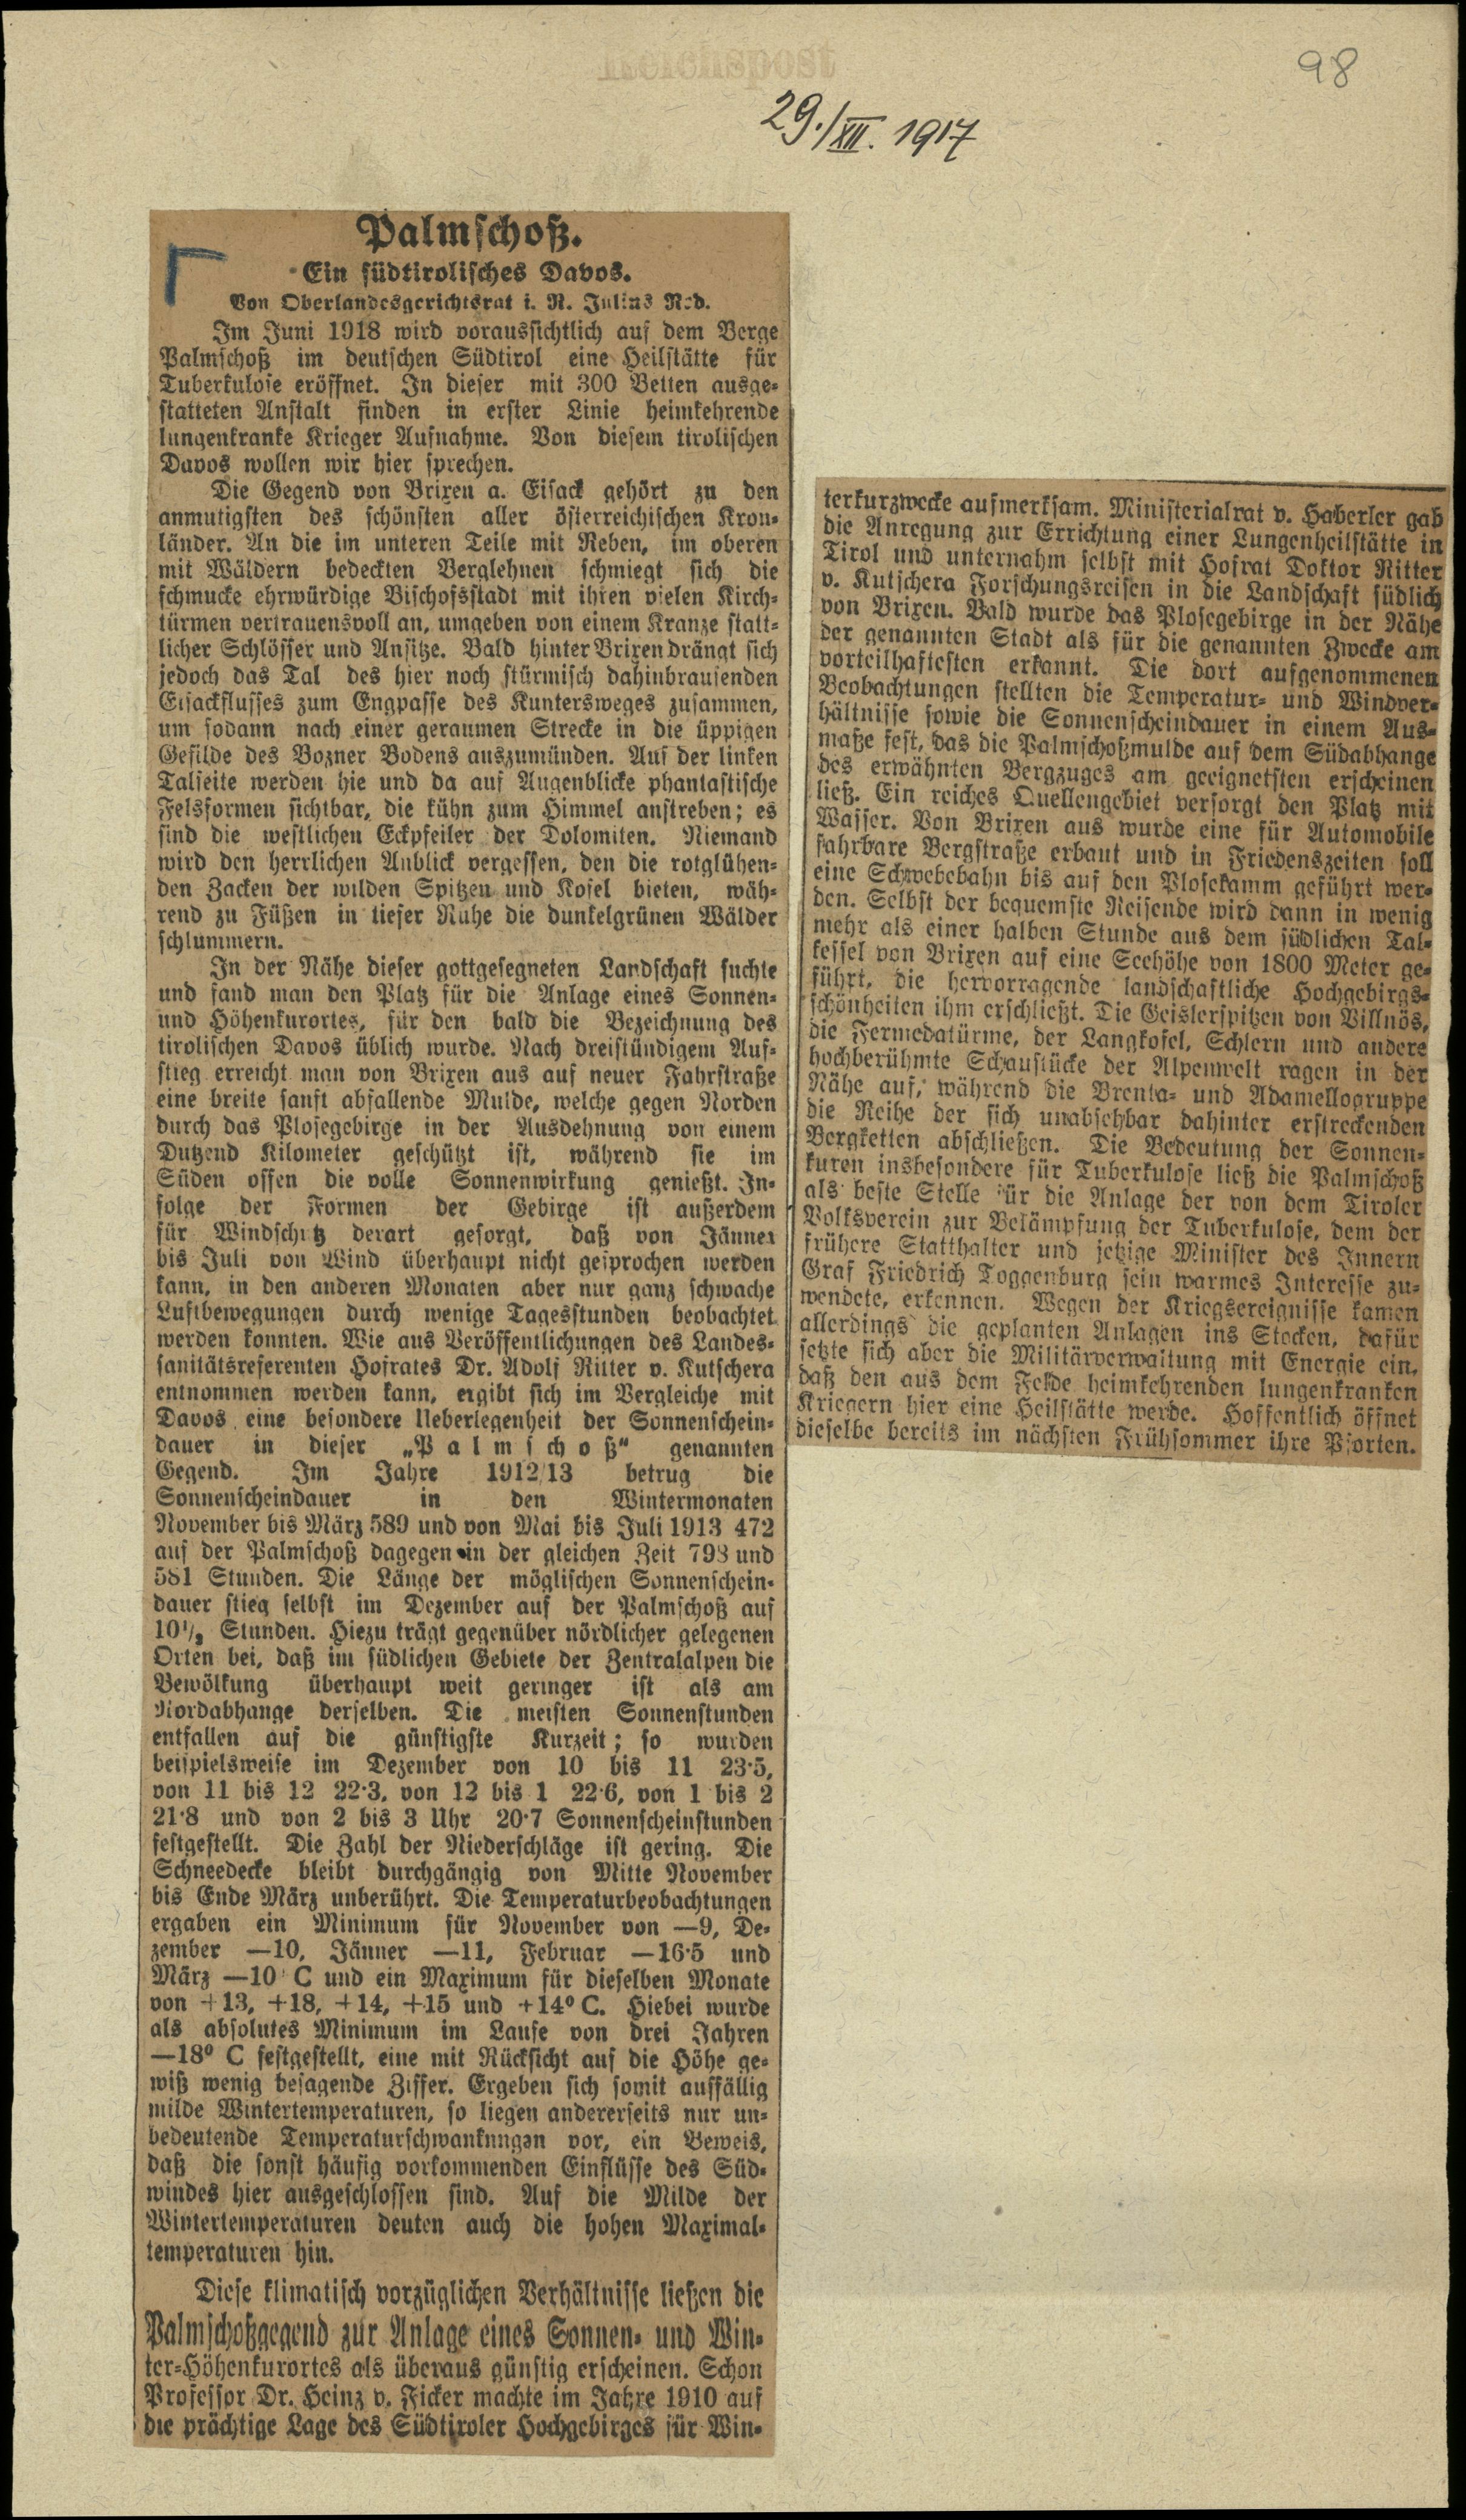 Reichspost
98
29./XII. 1917
Palmschoß.
Ein südtirolisches Davos.
Von Oberlandesgerichtsrat i. R. Julius
Im Juni 1918 wird voraussichtlich auf dem Berge
Palmschoß im deutschen Südtirol eine Heilstätte für
Tuberkulose eröffnet. In dieser mit 300 Betten ausge-
statteten Anstalt finden in erster Linie heimkehrende
lungenkranke Krieger Aufnahme. Von diesem tirolischen
Davos wollen wir hier sprechen.
Die Gegend von Brixen a. Eisack gehört zu den
anmutigsten des schönsten aller österreichischen Kron-
länder. An die im unteren Teile mit Reben, im oberen
mit Wäldern bedeckten Berglehnen schmiegt sich die
schmucke ehrwürdige Bischofsstadt mit ihren vielen Kirch-
türmen vertrauensvoll an, umgeben von einem Kranze statt-
licher Schlösser und Ansitze. Bald hinter Brixen drängt sich
jedoch das Tal des hier noch stürmisch dahinbrausenden
Eisackflusses zum Engpasse des Kuntersweges zusammen,
um sodann nach einer geraumen Strecke in die üppigen
Gefilde des Bozner Bodens auszumünden. Auf der linken
Talseite werden hie und da auf Augenblicke phantastische
Felsformen sichtbar, die kühn zum Himmel anstreben; es
sind die westlichen Eckpfeiler der Dolomiten. Niemand
wird den herrlichen Anblick vergessen, den die rotglühen-
den Zacken der wilden Spitzen und Kofel bieten, wäh-
rend zu Füßen in tiefer Ruhe die dunkelgrünen Wälder
schlummern.
In der Nähe dieser gottgesegneten Landschaft suchte
und fand man den Platz für die Anlage eines Sonnen-
und Höhenkurortes, für den bald die Bezeichnung des
tirolischen Davos üblich wurde. Nach dreistündigem Auf-
stieg erreicht man von Brixen aus auf neuer Fahrstraße
eine breite sanft abfallende Mulde, welche gegen Norden
durch das Plosegebirge in der Ausdehnung von einem
Dutzend Kilometer geschützt ist, während sie im
Süden offen die volle Sonnenwirkung genießt. In-
folge der Formen der Gebirge ist außerdem
für Windschutz derart gesorgt, daß von Jänner
bis Juli von Wind überhaupt nicht gesprochen werden
kann, in den anderen Monaten aber nur ganz schwache
Luftbewegungen durch wenige Tagesstunden beobachtet
werden konnten. Wie aus Veröffentlichungen des Landes-
sanitätsreferenten Hofrates Dr. Adolf Ritter v. Kutschera
entnommen werden kann, ergibt sich im Vergleiche mit
Davos eine besondere Ueberlegenheit der Sonnenschein-
dauer in dieser „Palmschoß“ genannten
Gegend. Im Jahre 1912/13 betrug die
Sonnenscheindauer in den Wintermonaten
November bis März 589 und von Mai bis Juli 1913 472
auf der Palmschoß dagegen in der gleichen Zeit 798 und
581 Stunden. Die Länge der möglischen Sonnenschein-
dauer stieg selbst im Dezember auf der Palmschoß auf
10½ Stunden. Hiezu trägt gegenüber nördlicher gelegenen
Orten bei, daß im südlichen Gebiete der Zentralalpen die
Bewölkung überhaupt weit geringer ist als am
Nordabhange derselben. Die meisten Sonnenstunden
entfallen auf die günstigste Kurzeit; so wurden
beispielsweise im Dezember von 10 bis 11 23·5,
von 11 bis 12 22·3, von 12 bis 1 22·6, von 1 bis 2
21·8 und von 2 bis 3 Uhr 20·7 Sonnenscheinstunden
festgestellt. Die Zahl der Niederschläge ist gering. Die
Schneedecke bleibt durchgängig von Mitte November
bis Ende März unberührt. Die Temperaturbeobachtungen
ergaben ein Minimum für November von —9, De-
zember —10, Jänner —11, Februar —16·5 und
März —10° C und ein Maximum für dieselben Monate
von +13, +18, +14, +15 und +14° C. Hiebei wurde
als absolutes Minimum im Laufe von drei Jahren
—18° C festgestellt, eine mit Rücksicht auf die Höhe ge-
wiß wenig besagende Ziffer. Ergeben sich somit auffällig
milde Wintertemperaturen, so liegen andererseits nur un-
bedeutende Temperaturschwankungen vor, ein Beweis,
daß die sonst häufig vorkommenden Einflüsse des Süd-
windes hier ausgeschlossen sind. Auf die Milde der
Wintertemperaturen deuten auch die hohen Maximal-
temperaturen hin.
Diese klimatisch vorzüglichen Verhältnisse ließen die
Palmschoßgegend zur Anlage eines Sonnen- und Win-
ter-Höhenkurortes als überaus günstig erscheinen. Schon
Professor Dr. Heinz v. Ficker machte im Jahre 1910 auf
die prächtige Lage des Südtiroler Hochgebirges für Win-
terkurzwecke aufmerksam. Ministerialrat v. Haberler gab
die Anregung zur Errichtung einer Lungenheilstätte in
Tirol und unternahm selbst mit Hofrat Doktor Ritter
v. Kutschera Forschungsreisen in die Landschaft südlich
von Brixen. Bald wurde das Plosegebirge in der Nähe
der genannten Stadt als für die genannten Zwecke am
vorteilhaftesten erkannt. Die dort aufgenommenen
Beobachtungen stellten die Temperatur- und Windver-
hältnisse sowie die Sonnenscheindauer in einem Aus-
maße fest, das die Palmschoßmulde auf dem Südabhange
des erwähnten Bergzuges am geeignetsten erscheinen
ließ. Ein reiches Quellengebiet versorgt den Platz mit
Wasser. Von Brixen aus wurde eine für Automobile
fahrbare Bergstraße erbaut und in Friedenszeiten soll
eine Schwebebahn bis auf den Plosekamm geführt wer-
den. Selbst der bequemste Reisende wird dann in wenig
mehr als einer halben Stunde aus dem südlichen Tal-
kessel von Brixen auf eine Seehöhe von 1800 Meter ge-
führt, die hervorragende landschaftliche Hochgebirgs-
schönheiten ihm erschließt. Die Geislerspitzen von Villnös,
die Fermedatürme, der Langkofel, Schlern und andere
hochberühmte Schaustücke der Alpenwelt ragen in der
Nähe auf, während die Brenta- und Adamellogruppe
die Reihe der sich unabsehbar dahinter erstreckenden
Bergketten abschließen. Die Bedeutung der Sonnen-
kuren insbesondere für Tuberkulose ließ die Palmschoß
als beste Stelle für die Anlage der von dem Tiroler
Volksverein zur Bekämpfung der Tuberkulose, dem der
frühere Statthalter und jetzige Minister des Innern
Graf Friedrich Toggenburg sein warmes Interesse zu-
wendete, erkennen. Wegen der Kriegsereignisse kamen
allerdings die geplanten Anlagen ins Stocken, dafür
setzte sich aber die Militärverwaltung mit Energie ein,
daß den aus dem Felde heimkehrenden lungenkranken
Kriegern hier eine Heilstätte werde. Hoffentlich öffnet
dieselbe bereits im nächsten Frühsommer ihre Pforten.